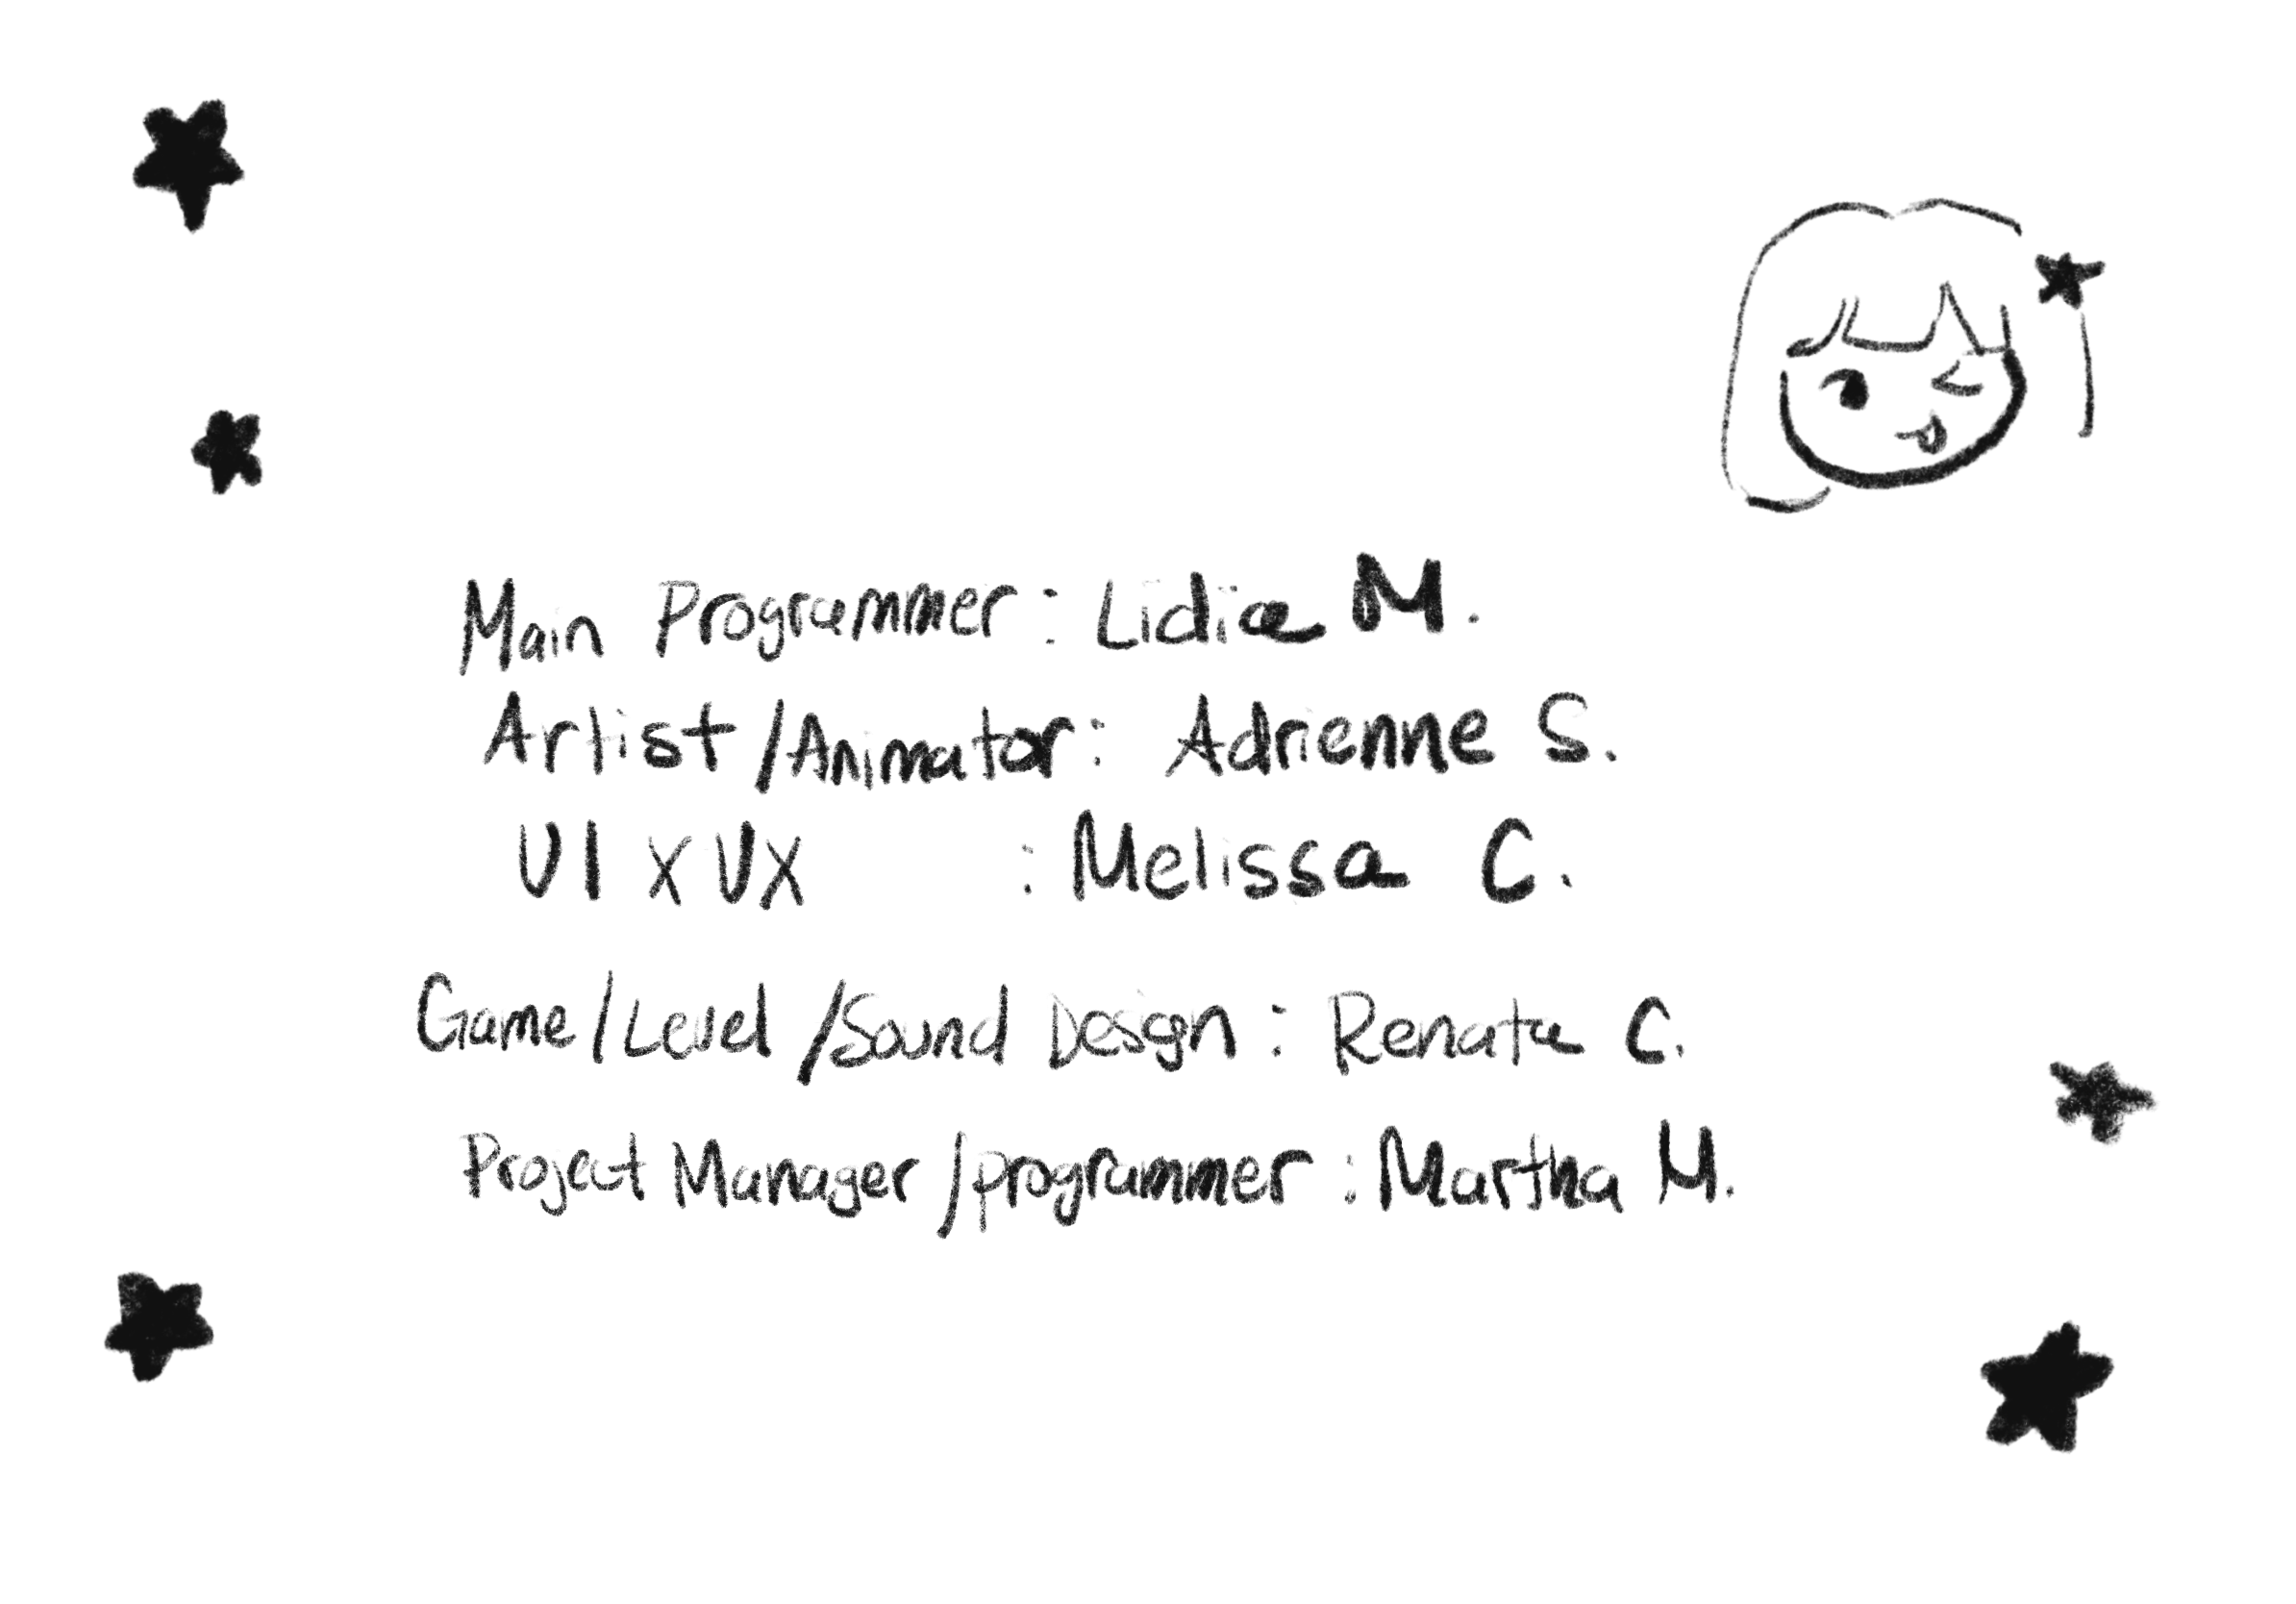 Main Programmer : Lidia M.
Artist/Animator : Adrienne S.
UI x UX : Melissa C.
Game/Level/Sound Design : Renata C.
Project Manager/programmer : Martha M.